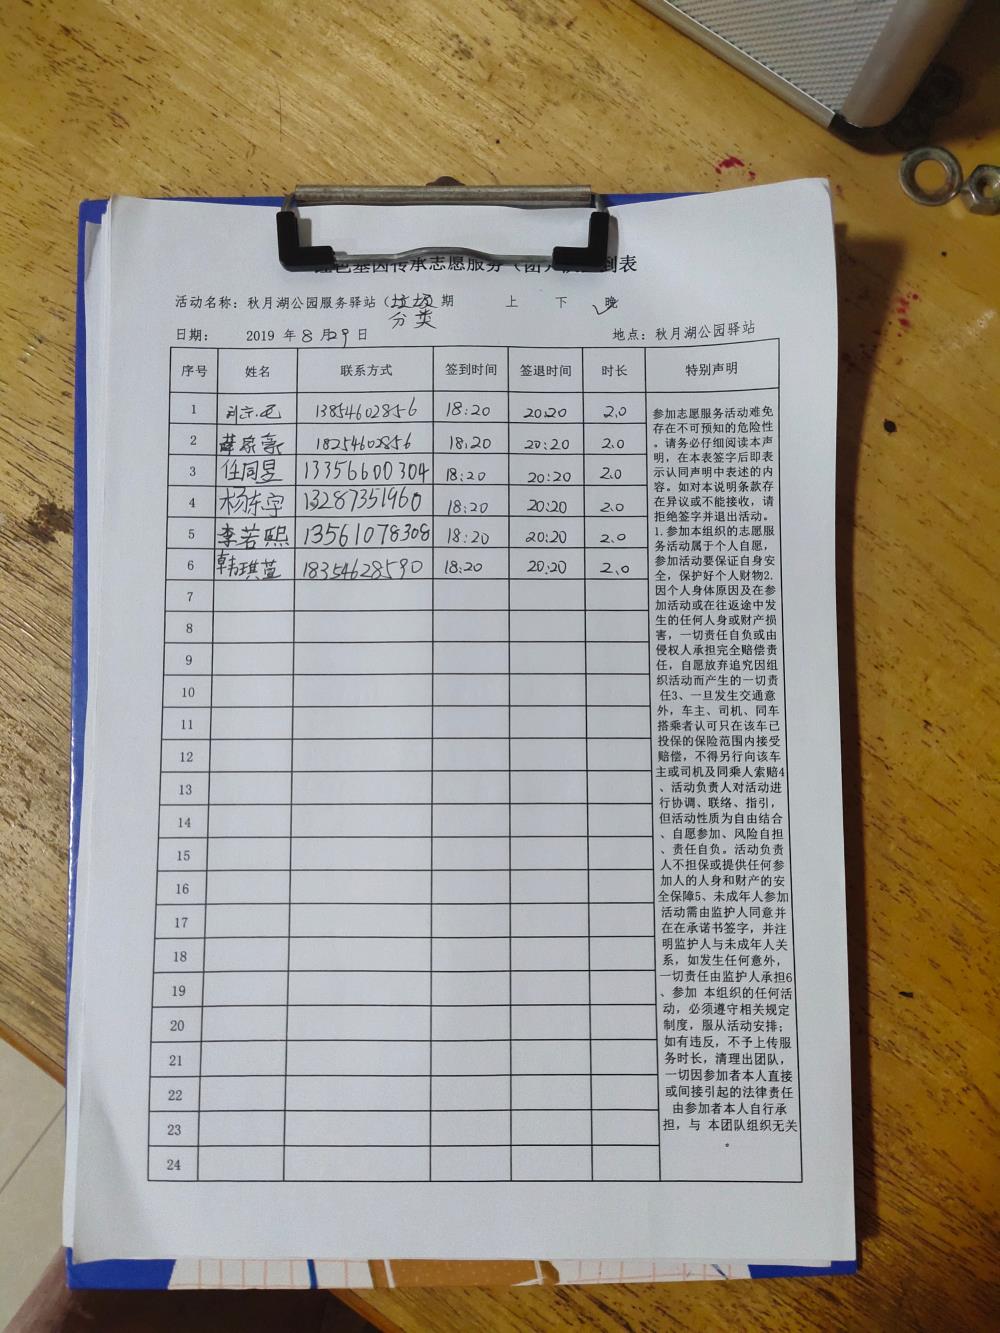 红色基因传承志愿服务（团 到表
活动名称：秋月湖公园服务驿站（垃圾 期 上 下 晚
分类
日期： 2019 年8月29日 地点：秋月湖公园驿站
序号 姓名 联系方式 签到时间 签退时间 时长 特别声明
1 13854602856 18:20 20:20 2.0
2 薛家豪 18254602856 18:20 20:20 2.0
3 任同昱 13356600304 18:20 20:20 2.0
4 杨东宇 13287351960 18:20 20:20 2.0
5 李若熙 13561078308 18:20 20:20 2.0
6 韩琪萱 18354628590 18:20 20:20 2.0
7
8
9
10
11
12
13
14
15
16
17
18
19
20
21
22
23
24
参加志愿服务活动难免
存在不可预知的危险性
。请务必仔细阅读本声
明，在本表签字后即表
示认同声明中表述的内
容。如对本说明条款存
在异议或不能接收，请
拒绝签字并退出活动。
1.参加本组织的志愿服
务活动属于个人自愿，
参加活动要保证自身安
全，保护好个人财物2.
因个人身体原因及在参
加活动或在往返途中发
生的任何人身或财产损
害，一切责任自负或由
侵权人承担完全赔偿责
任，自愿放弃追究因组
织活动而产生的一切责
任3、一旦发生交通意
外，车主、司机、同车
搭乘者认可只在该车已
投保的保险范围内接受
赔偿，不得另行向该车
主或司机及同乘人索赔4
、活动负责人对活动进
行协调、联络、指引，
但活动性质为自由结合
、自愿参加、风险自担
、责任自负。活动负责
人不担保或提供任何参
加人的人身和财产的安
全保障5、未成年人参加
活动需由监护人同意并
在在承诺书签字，并注
明监护人与未成年人关
系，如发生任何意外，
一切责任由监护人承担6
、参加 本组织的任何活
动，必须遵守相关规定
制度，服从活动安排；
如有违反，不予上传服
务时长，清理出团队，
一切因参加者本人直接
或间接引起的法律责任
由参加者本人自行承
担，与 本团队组织无关
。